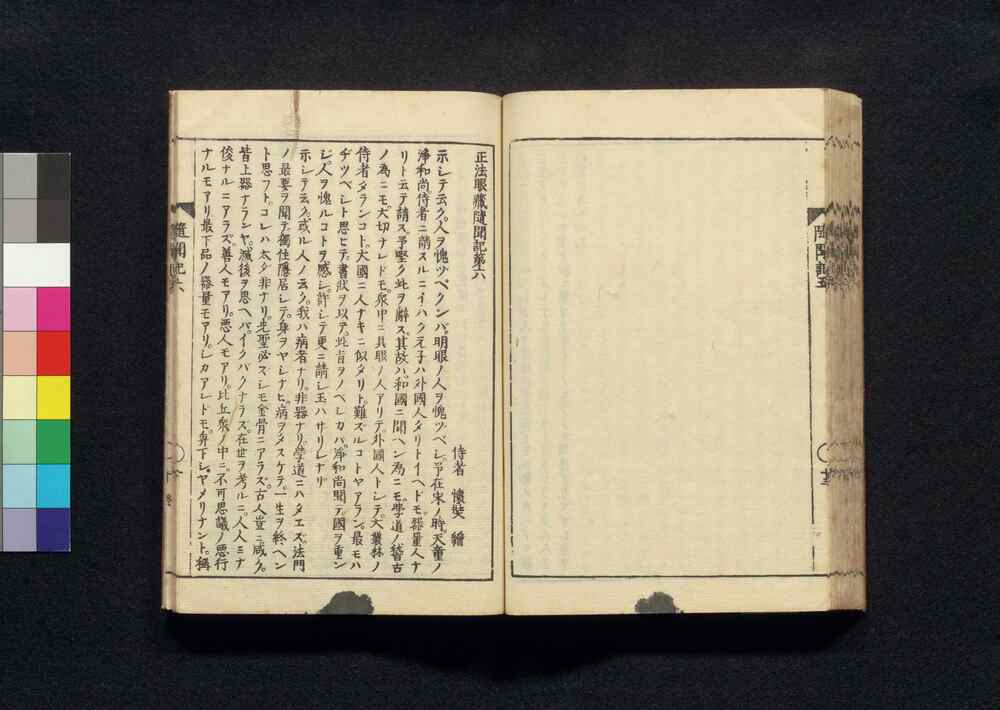 正法眼藏隨聞記第六
侍者 懷奘 編
示シテ云ク人ヲ愧ツベクンバ明眼ノ人ヲ愧ツベシ予在宋ノ時天童ノ
淨和尚侍者ニ請スルニイハク元子ハ外國人タリトイヘドモ器量人ナ
リト云テ請ス予堅ク此ヲ辭ス其故ハ和國ニ聞ヘン為ニモ學道ノ稽古
ノ為ニモ大切ナレドモ衆中ニ具眼ノ人アリテ外國人トシテ大叢林ノ
侍者タランコト大國ニ人ナキニ似タリト難ズルコトヤアラン最モハ
ヂツベシト思ヒテ書狀ヲ以テ此旨ヲノベシカバ淨和尚聞テ國ヲ重ン
ジ人ヲ愧ルコトヲ感シ許シテ更ニ請シ玉ハサリシナリ
示シテ云ク或ル人ノ云ク我ハ病者ナリ非器ナリ學道ニハタエズ法門
ノ最要ヲ聞テ獨住隱居シテ身ヲヤシナヒ病ヲタスケテ一生ヲ終ヘン
ト思フトコレハ太タ非ナリ先聖必ズシモ金骨ニアラズ古人豈ニ咸ク
皆上器ナランヤ滅後ヲ思ヘバイクバクナラズ在世ヲ考ルニ人人ミナ
俊ナルニアラズ善人モアリ惡人モアリ比丘衆ノ中ニ不可思議ノ惡行
ナルモアリ最下品ノ器量モアリシカアレドモ卑下シヤメリナント稱
隨聞記六